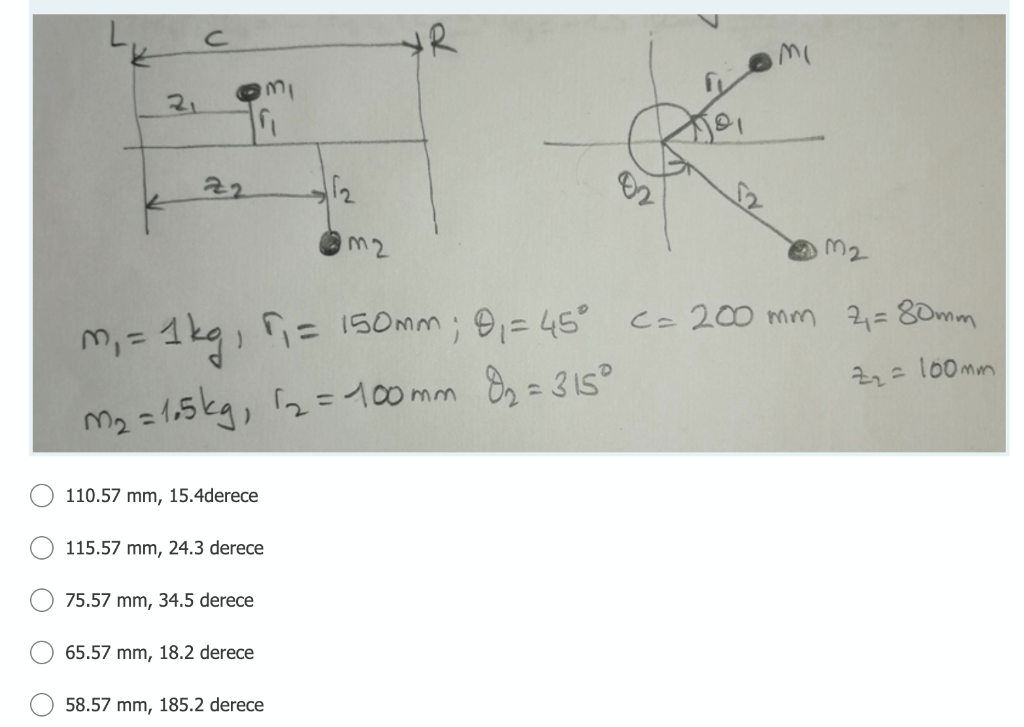 L C R
m1
z1 r1
z2 r2
m2
m1
r1 θ1
θ2 r2
m2
m1 = 1kg, r1 = 150mm; θ1 = 45° c = 200 mm z1 = 80mm
m2 = 1,5kg, r2 = 100mm θ2 = 315° z2 = 160mm
110.57 mm, 15.4derece
115.57 mm, 24.3 derece
75.57 mm, 34.5 derece
65.57 mm, 18.2 derece
58.57 mm, 185.2 derece